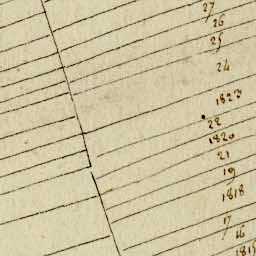 27
26
25
24
1823
22
1820
21
19
1818
17
16
1815